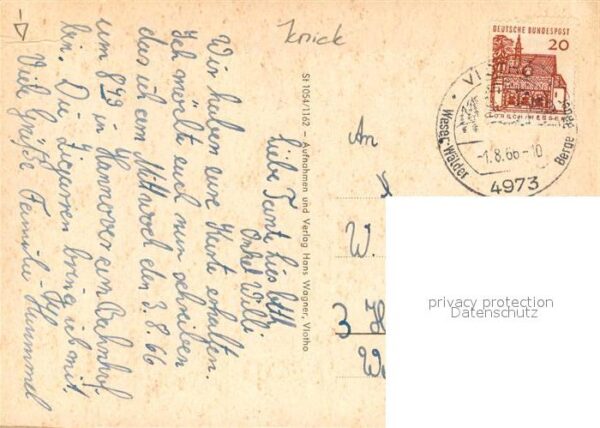 Knick
Liebe Tante Liesbeth
Onkel Willi
Wir haben eure Karte erhalten.
Ich möchte euch nun schreiben
das ich am Mittwoch den 3.8.66
um 8 49 in Hannover am Bahnhof
bin. Die Zigarren bring ich mit.
Viele Grüße Familie Hummel
St 1054/1162 – Aufnahmen und Verlag Hans Wagner, Vlotho
An
W.
3
DEUTSCHE BUNDESPOST
20
VLOTHO
Weser · Wälder
Berge · Bäder
-1.8.66-10
4973
privacy protection
Datenschutz